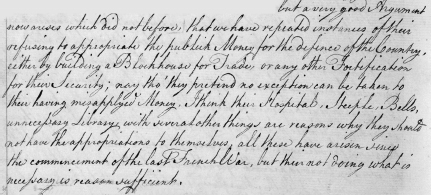 but a very good Argument
now arises which did not before, that we have repeated instances of their
refusing to appropriate the publick Money for the defence of the Country,
either by building a Blockhouse for Trade, or any other Fortification
for their Security; nay tho' they pretend no exception can be taken to
their having misapplyed Money, I think their Hospital, Steeple, Bells,
unnecessary Library, with several other things are reasons why they should
not have the appropriations to themselves, all these have arisen since
the commencement of the last French War, but their not doing what is
necessary is reason sufficient.